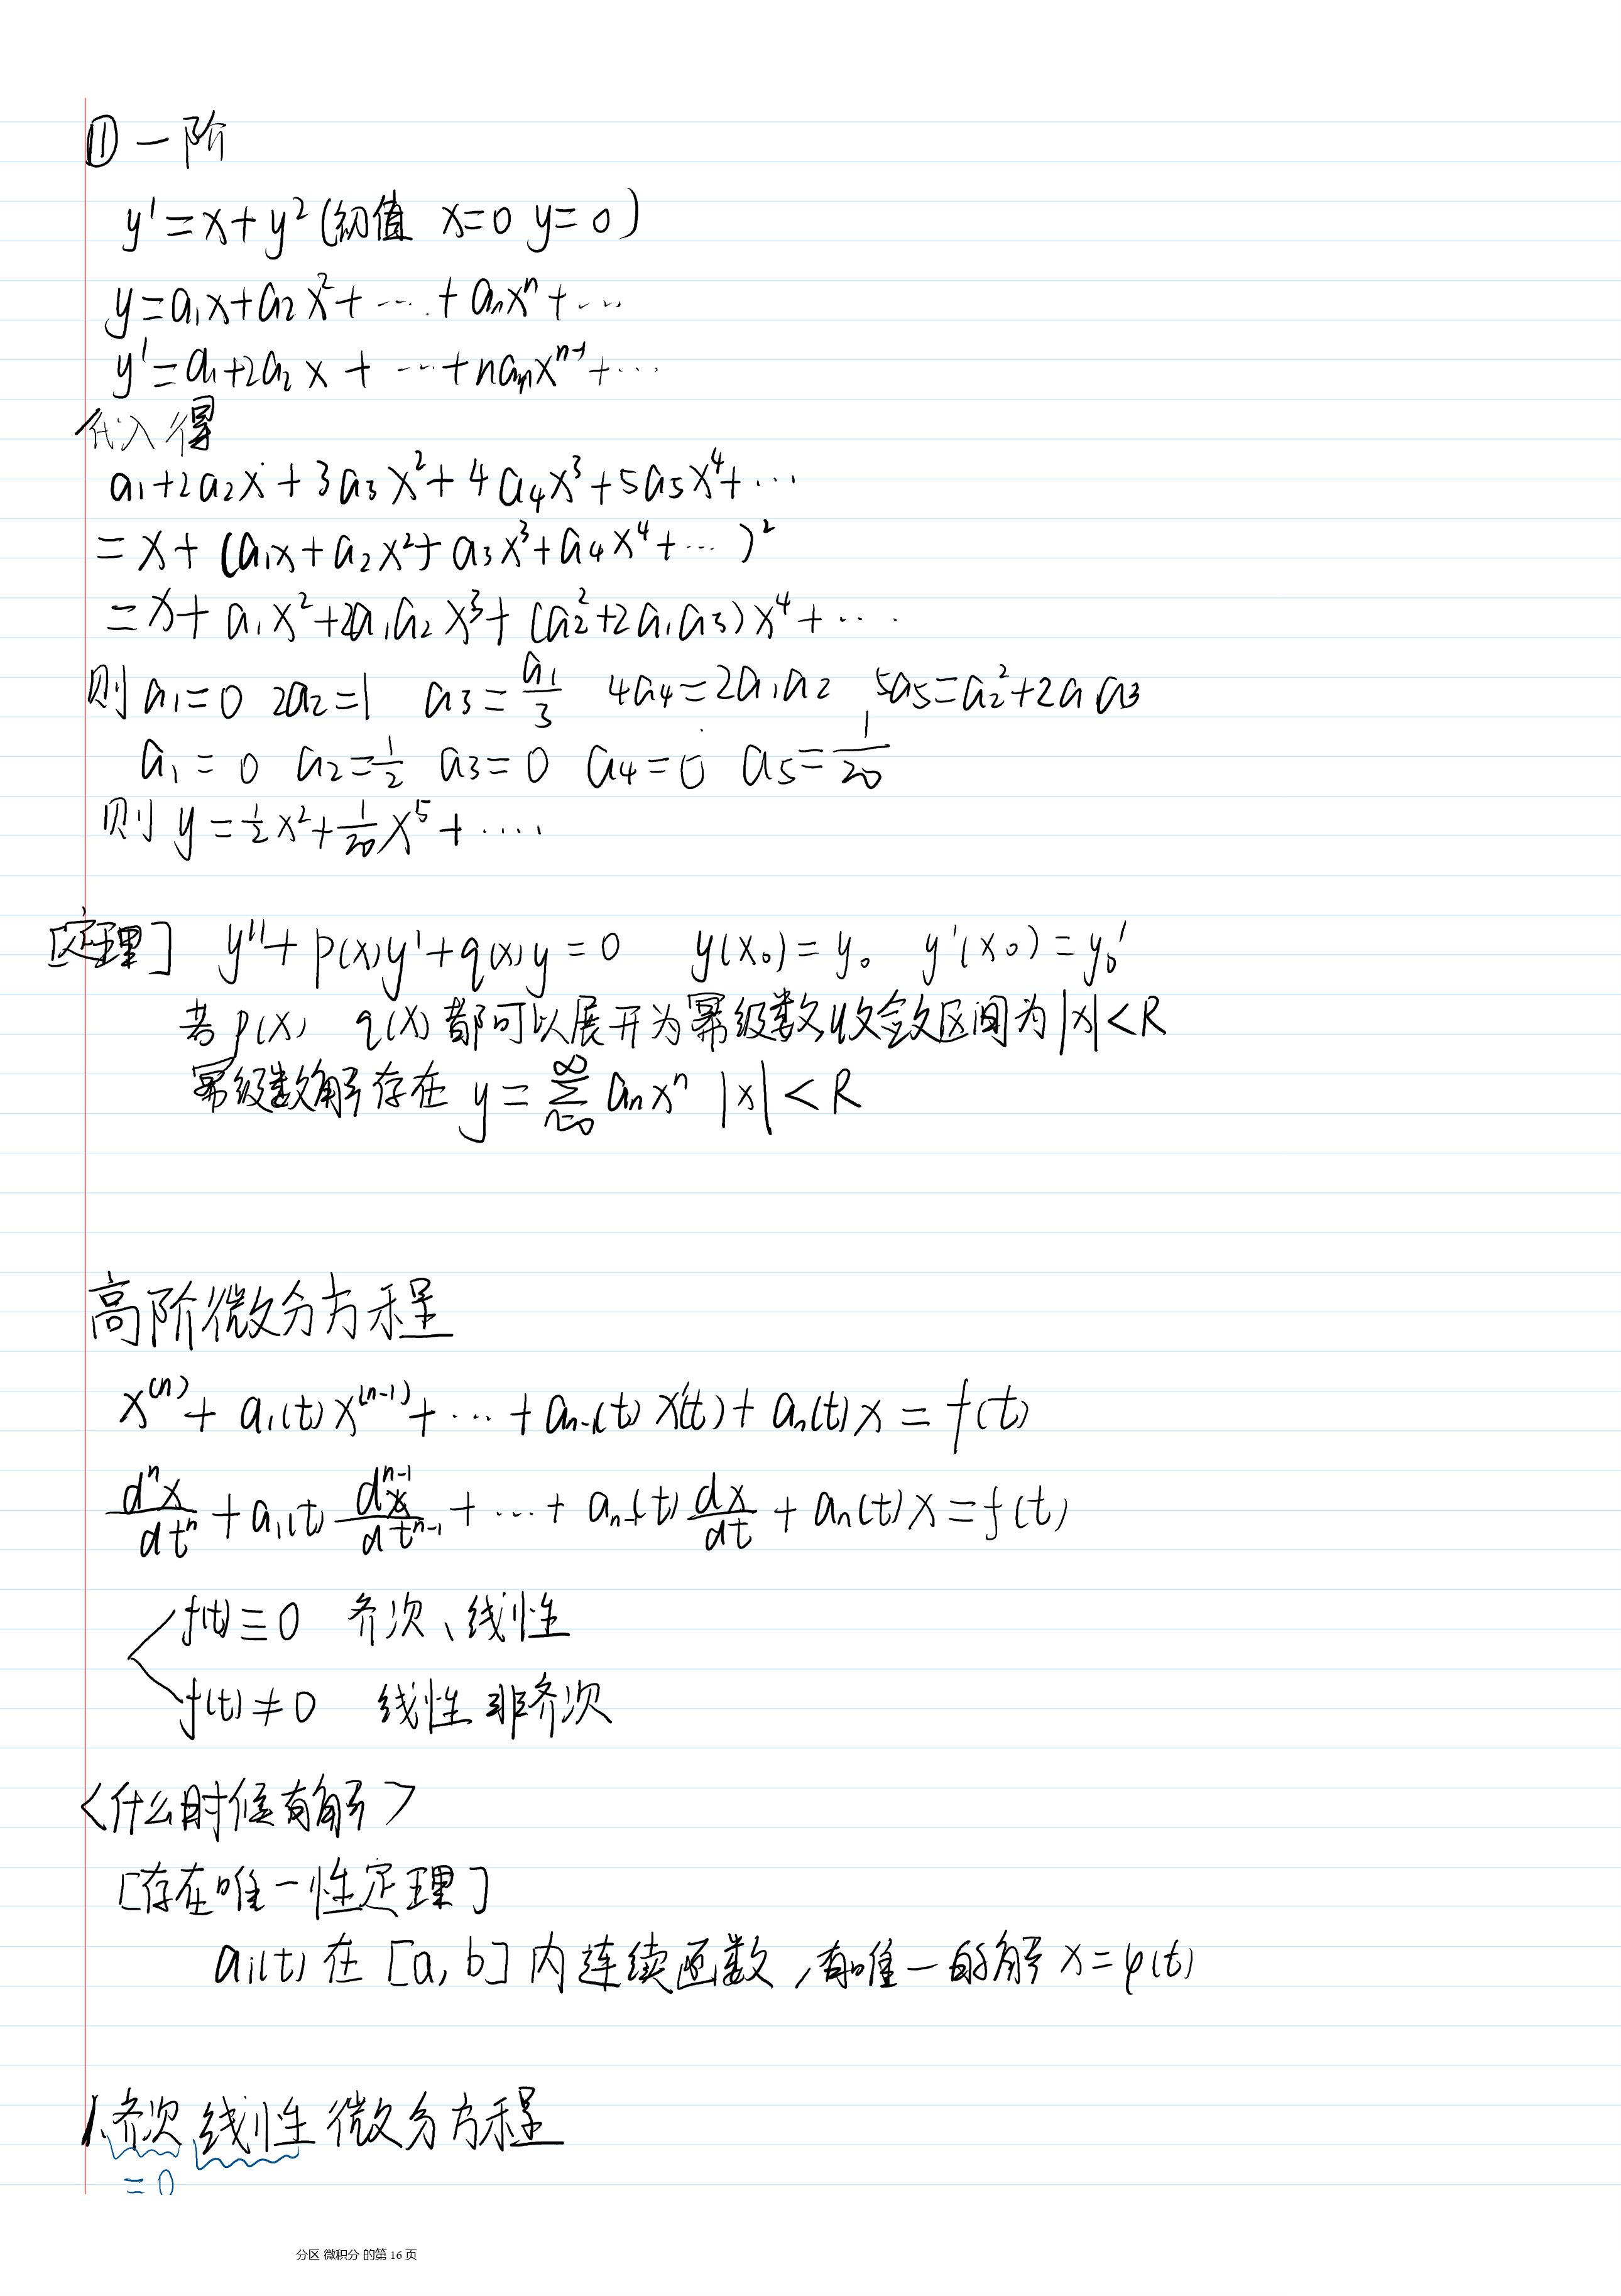 ① 一阶
y' = x + y² (初值 x=0 y=0)
y = a₁x + a₂x² + ⋯ + aₙxⁿ + ⋯
y' = a₁ + 2a₂x + ⋯ + naₙxⁿ⁻¹ + ⋯
代入得
a₁ + 2a₂x + 3a₃x² + 4a₄x³ + 5a₅x⁴ + ⋯
= x + (a₁x + a₂x² + a₃x³ + a₄x⁴ + ⋯)²
= x + a₁x² + 2a₁a₂x³ + (a₂² + 2a₁a₃)x⁴ + ⋯
则 a₁=0 2a₂=1 a₃=a₁/3 4a₄=2a₁a₂ 5a₅=a₂²+2a₁a₃
a₁=0 a₂=1/2 a₃=0 a₄=0 a₅=1/20
则 y = 1/2 x² + 1/20 x⁵ + ⋯
[定理] y'' + p(x)y' + q(x)y = 0 y(x₀)=y₀ y'(x₀)=y₀'
若 p(x) q(x) 都可以展开为幂级数,收敛区间为|x|<R
幂级数解存在 y = ∑_{n=0}^{∞} aₙxⁿ |x|<R
高阶微分方程
x⁽ⁿ⁾ + a₁(t)x⁽ⁿ⁻¹⁾ + ⋯ + aₙ₋₁(t)x'(t) + aₙ(t)x = f(t)
dⁿx/dtⁿ + a₁(t) dⁿ⁻¹x/dtⁿ⁻¹ + ⋯ + aₙ₋₁(t) dx/dt + aₙ(t)x = f(t)
f(t)≡0 齐次、线性
f(t)≠0 线性 非齐次
<什么时候有解>
[存在唯一性定理]
aᵢ(t) 在 [a,b] 内连续函数,有唯一的解 x=φ(t)
1.齐次 线性 微分方程
=0
分区 微积分 的第 16 页